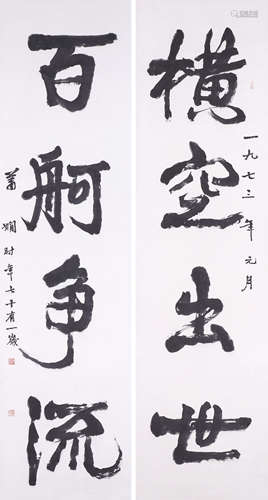 横空出世
一九七三年元月
百舸争流
萧娴时年七十有一岁